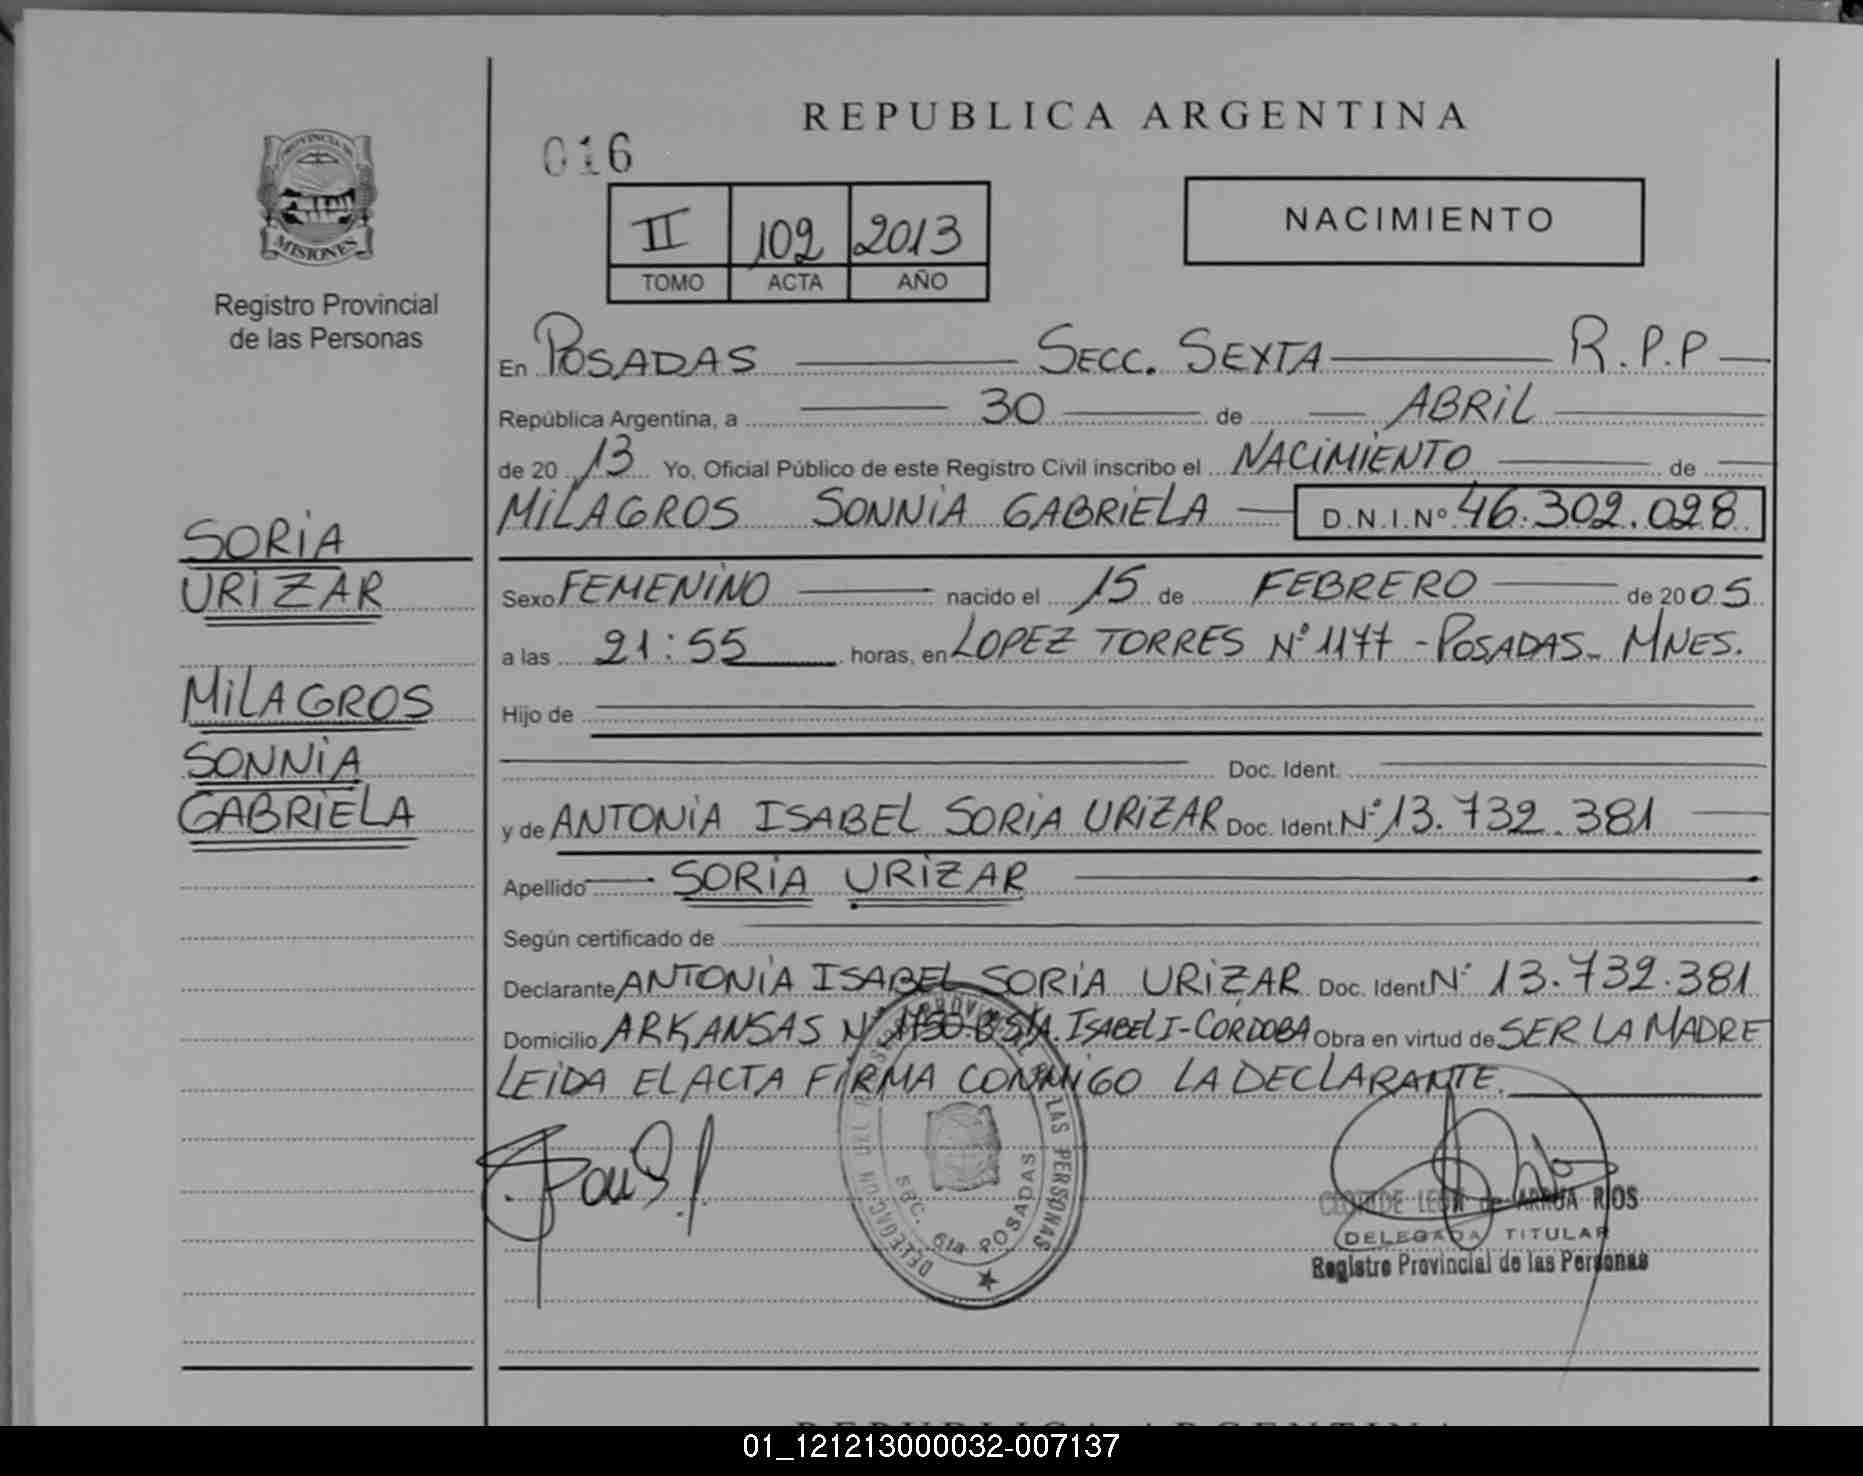 REPUBLICA ARGENTINA
016
NACIMIENTO
PROVINCIA DE
MISIONES
Registro Provincial
de las Personas
II 102 2013
TOMO ACTA AÑO
En POSADAS SECC. SEXTA R.P.P
República Argentina, a 30 de ABRIL
de 2013 Yo, Oficial Público de este Registro Civil inscribo el NACIMIENTO de
MILAGROS SONNIA GABRIELA D.N.I.Nº 46.302.028
SORIA
URIZAR
MILAGROS
SONNIA
GABRIELA
Sexo FEMENINO nacido el 15 de FEBRERO de 2005
a las 21:55 horas, en LOPEZ TORRES Nº 1177 - POSADAS - MNES.
Hijo de
Doc. Ident.
y de ANTONIA ISABEL SORIA URIZAR Doc. Ident. Nº 13.732.381
Apellido SORIA URIZAR
Según certificado de
Declarante ANTONIA ISABEL SORIA URIZAR Doc. Ident Nº 13.732.381
Domicilio ARKANSAS Nº 1750 ISABEL I - CORDOBA Obra en virtud de SER LA MADRE
LEIDA EL ACTA FIRMA CONMIGO LA DECLARANTE.
DELEGACION DEL REGISTRO PROVINCIAL DE LAS PERSONAS
SEC. 6ta POSADAS
LEON de ARRUA RIOS
DELEGADA TITULAR
Registro Provincial de las Personas
REPUBLICA ARGENTINA
01_121213000032-007137